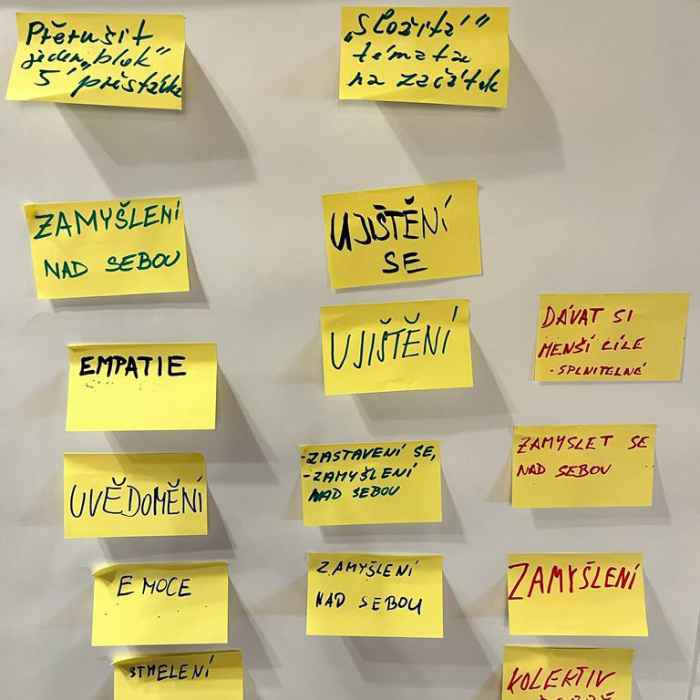 Přerušit
jeden „blok"
5'
„Složitá"
témata
na začátek
ZAMYŠLENÍ
NAD SEBOU
UJIŠTĚNÍ
SE
UJIŠTĚNÍ
DÁVAT SI
MENŠÍ CÍLE
- SPLNITELNÉ
EMPATIE
-ZASTAVENÍ SE,
-ZAMYŠLENÍ
NAD SEBOU
ZAMYSLET SE
NAD SEBOU
UVĚDOMĚNÍ
EMOCE
ZAMYŠLENÍ
NAD SEBOU
ZAMYŠLENÍ
STMELENÍ
KOLEKTIV